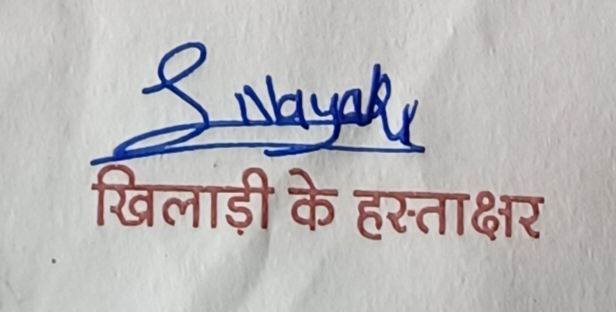 S Nayak
खिलाड़ी के हस्ताक्षर